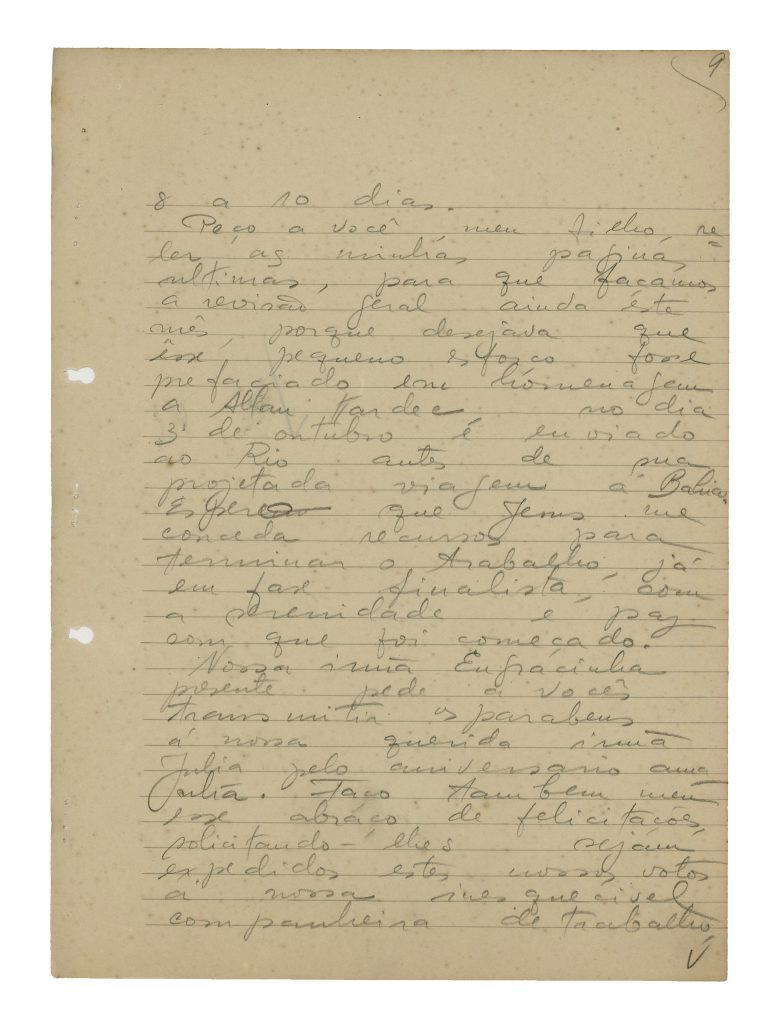 9
8 a 10 dias.
Peço a você, meu filho, re=
ler as minhas paginas
ultimas, para que façamos
a revisão geral ainda êste
mês, porque desejava que
êsse pequeno esforço fosse
prefaciado em homenagem
a Allan Kardec no dia
3 de outubro e enviado
ao Rio antes de sua
projetada viagem á Bahia.
Espero que Jesus me
conceda recursos para
terminar o trabalho, já
em fase finalista, com
a serenidade e paz
com que foi começado.
Nossa irmã Engracinha
presente pede a vocês
transmitir os parabens
á nossa querida irmã
Julia pelo aniversario ama
nhã. Faço tambem meu
esse abraço de felicitações,
solicitando-lhes sejam
expedidos estes nossos votos
a nossa inesquecivel
companheira de trabalho,